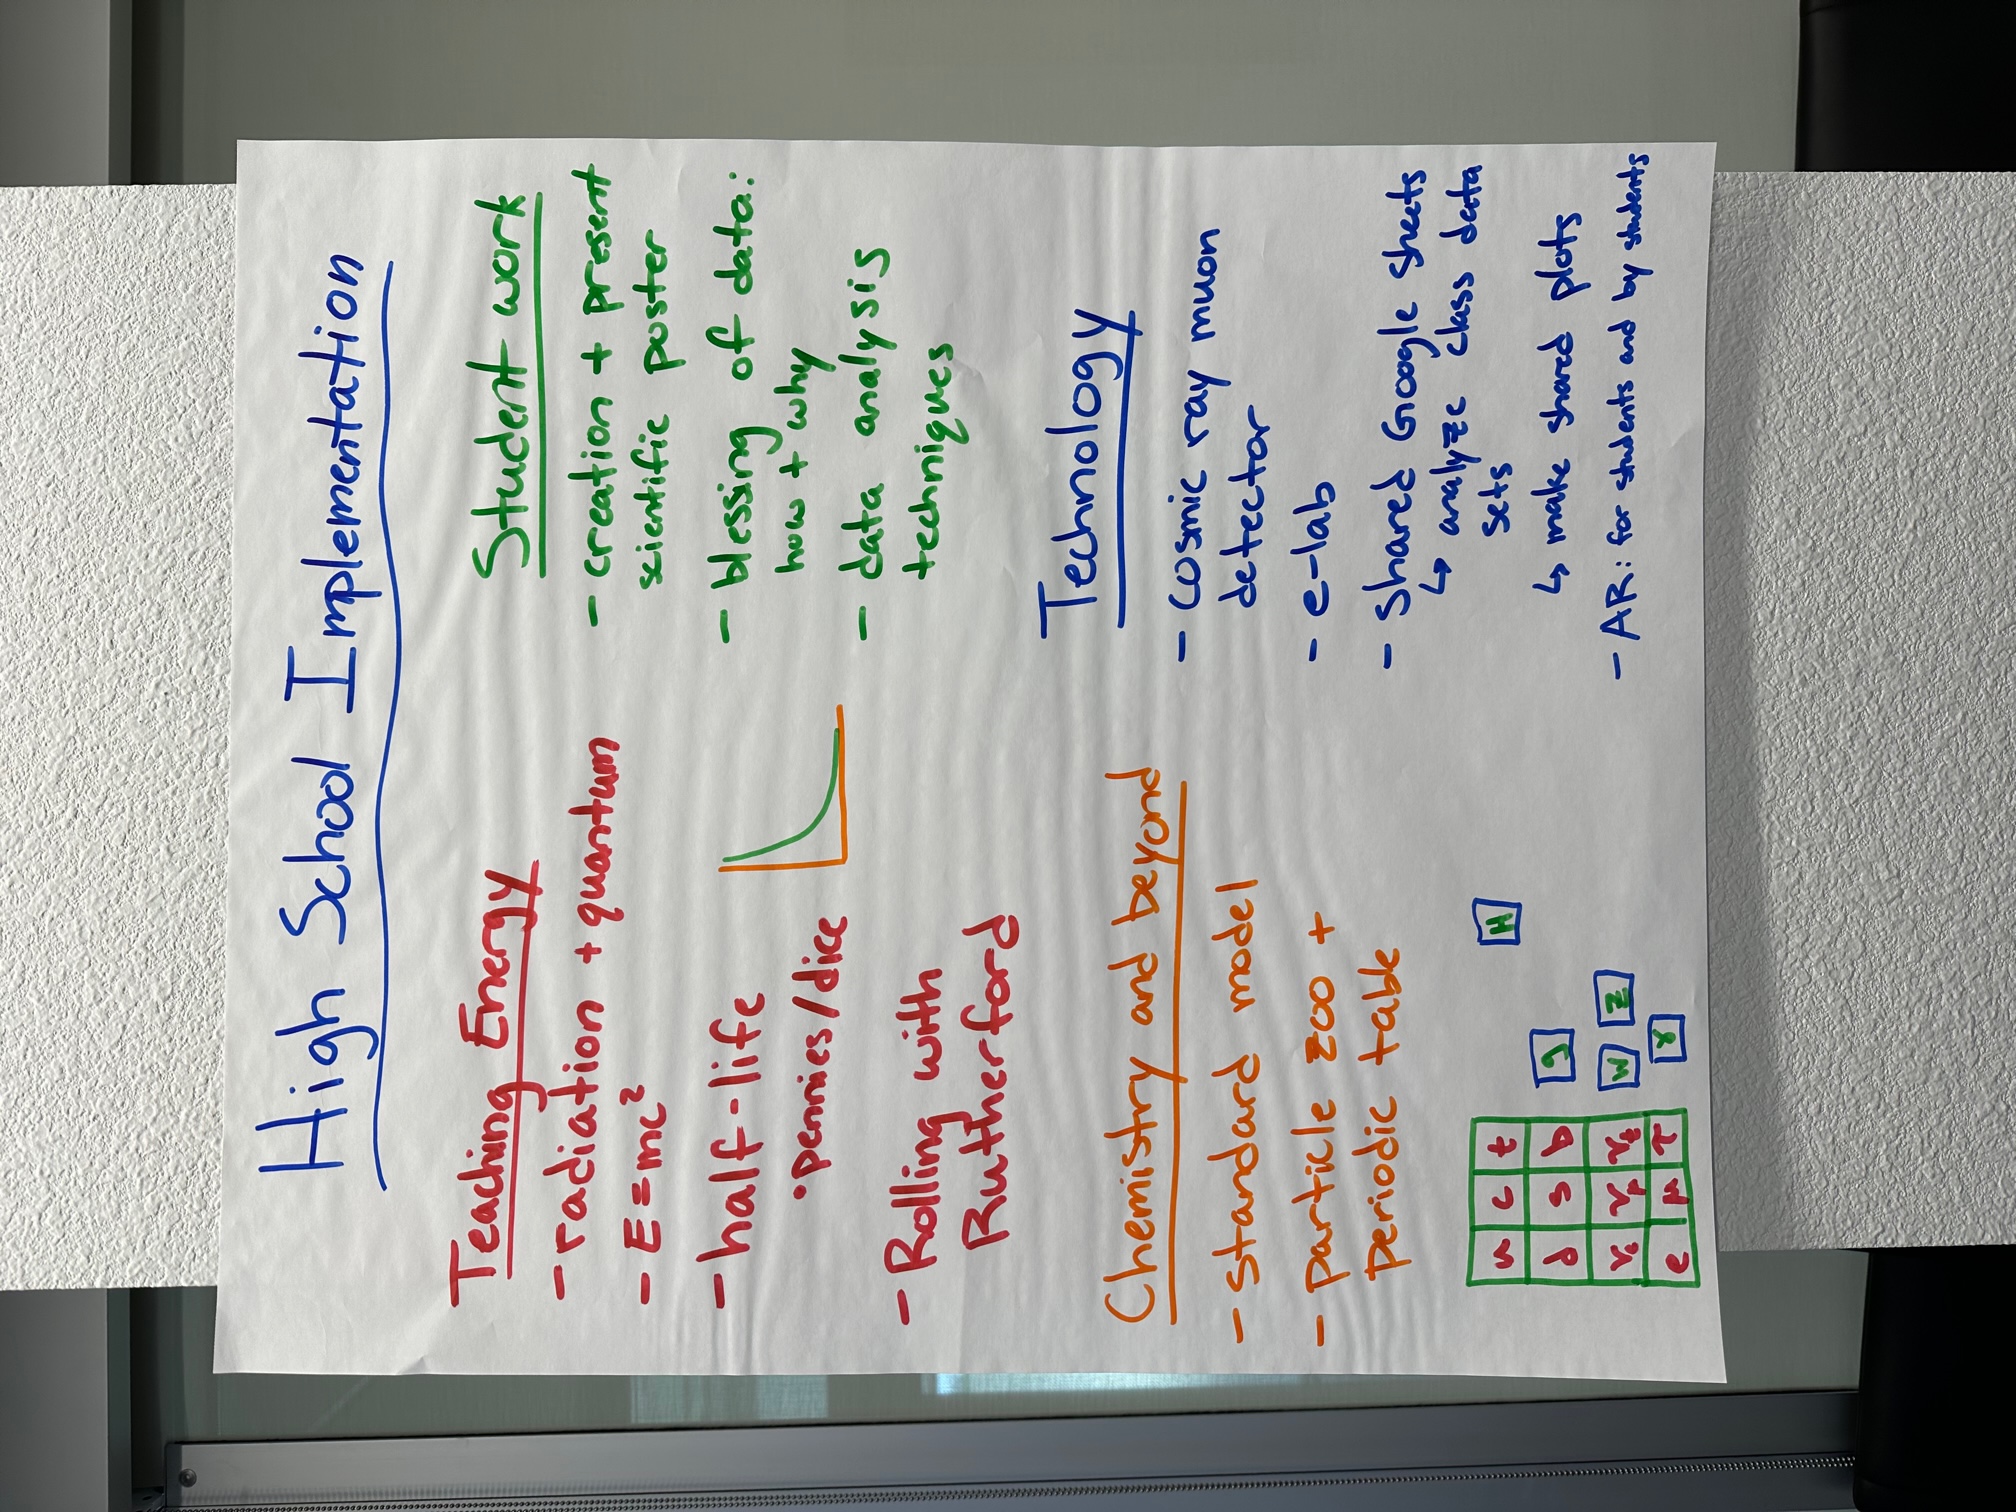 High School Implementation
Teaching Energy
- radiation + quantum
- E=mc²
- half-life
• pennies/dice
- Rolling with
Rutherford
Student work
- creation + present
scientific poster
- blessing of data:
how + why
- data analysis
techniques
Chemistry and beyond
- standard model
- particle zoo +
periodic table
u c t
d s b
νe νμ ντ
e μ τ
g
W Z
γ
H
Technology
- cosmic ray muon
detector
- e-lab
- Shared Google Sheets
↳ analyze class data
sets
↳ make shared plots
- AR: for students and by students